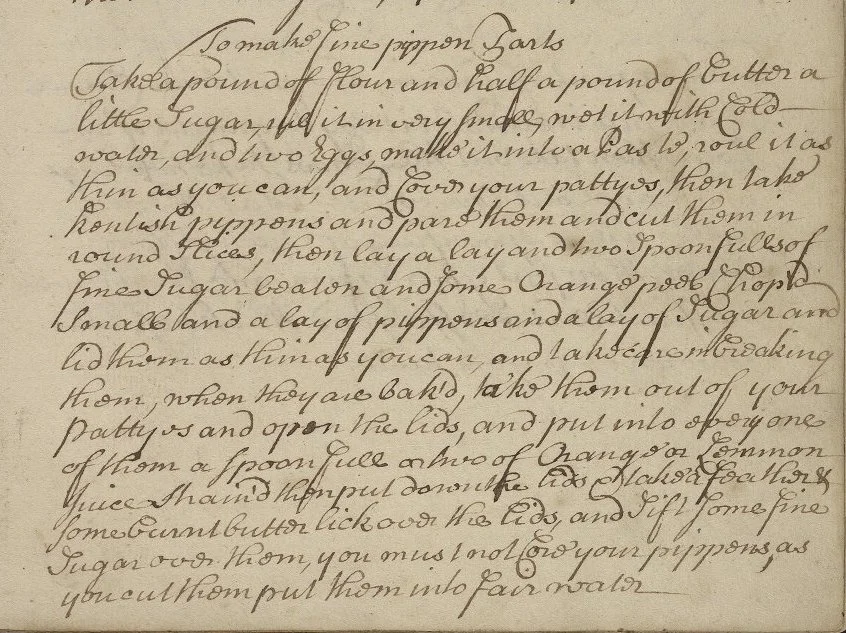 To make fine pippen Tarts
Take a pound of flour and half a pound of butter a
little Sugar, rub it in very small, wet it with Cold
water, and two Eggs, make it into a Paste, roul it as
thin as you can, and Cover your pattyes, then take
Kentish pippens and pare them and cut them in
round Slices, then lay a lay and two Spoonfulls of
fine Sugar beaten and some Orange peel Chop'd
Small and a lay of pippens and a lay of Sugar and
lid them as thin as you can, and take care in breaking
them, when they are bak'd, take them out of your
Pattyes and open the lids, and put into every one
of them a spoonfull or two of Orange or Lemmon
Juice Strain'd then put down the lids & take a feather &
some burnt butter lick over the lids, and Sift some fine
Sugar over them, you must not Core your pippens, as
you cut them put them into fair water